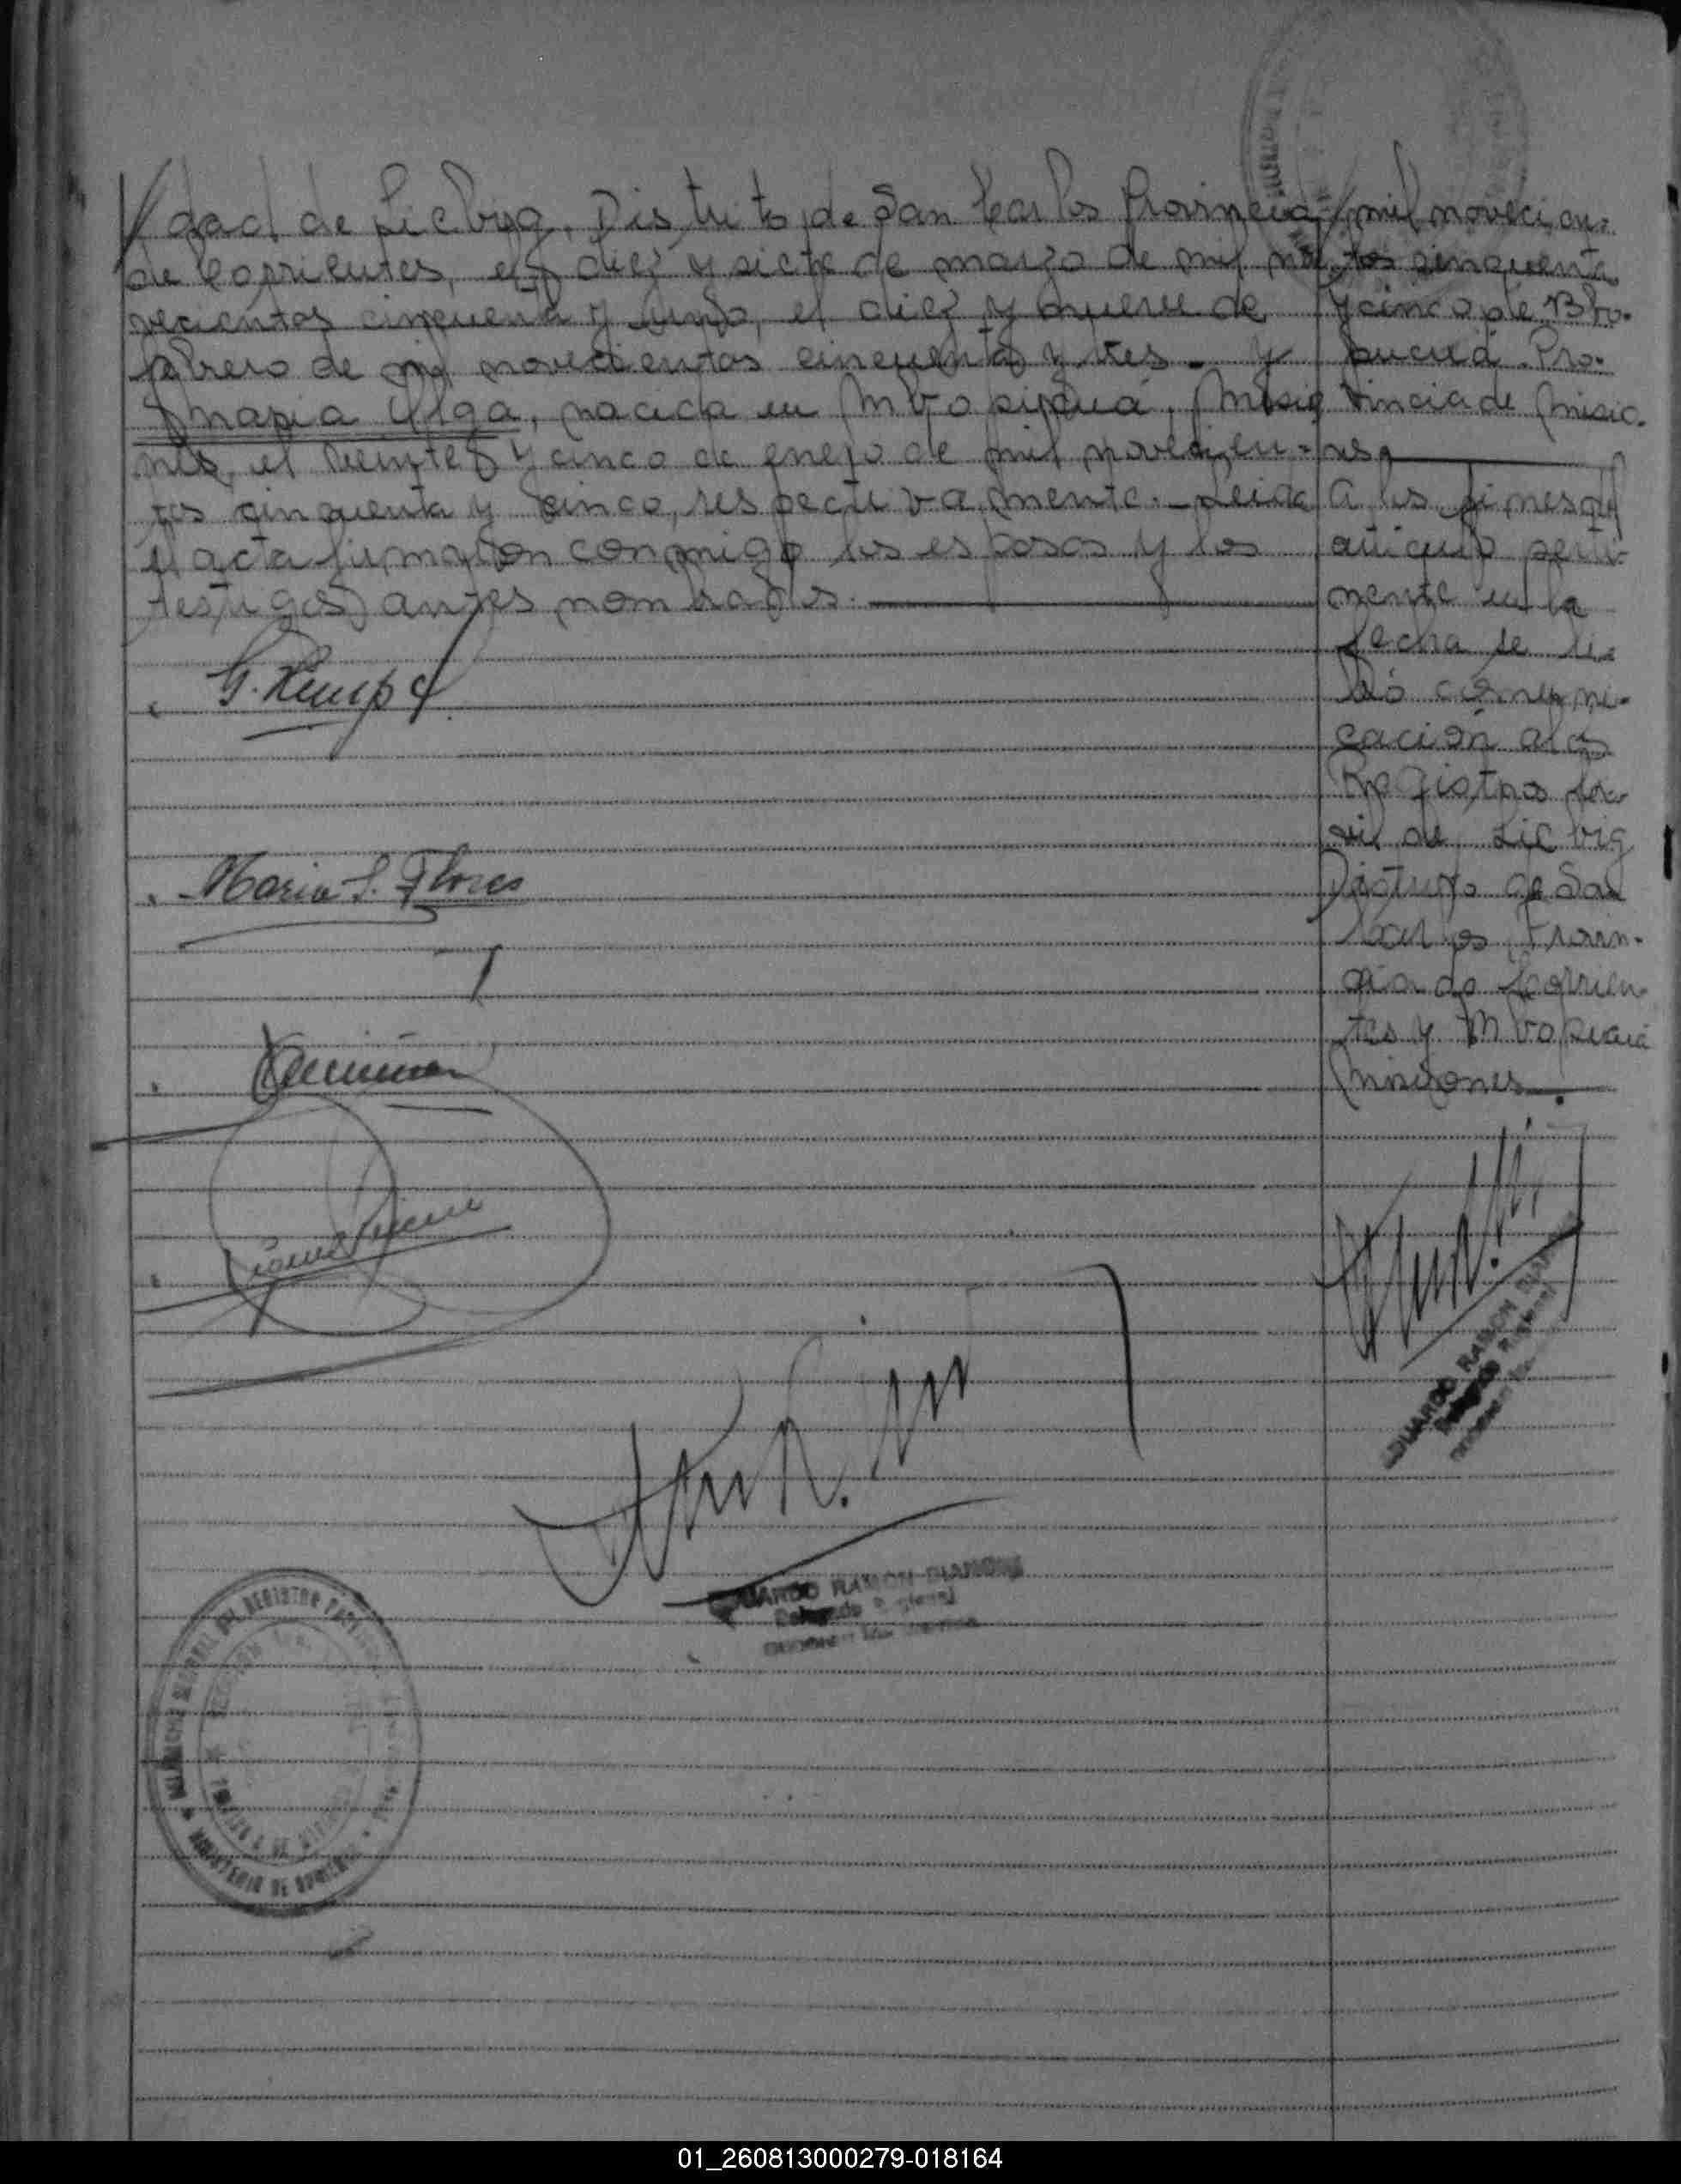 dad de Liebig, Distrito de San Carlos Provincia
de Corrientes, el diez y siete de marzo de mil no-
vecientos cincuenta y uno, el diez y nueve de
febrero de mil novecientos cincuenta y tres - y
Maria Olga, nacida en Mbopicuá, Misio
nes, el veinte y cinco de enero de mil novecien-
tos cinquenta y cinco, respectivamente.- Leida
el acta firmaron conmigo los esposos y los
testigos antes nombrados.
G. Kempf
Maria S. Flores
EDUARDO RAMON
Delegado Regional
mil novecien-
tos cinquenta
y cinco de Bho-
picuá. Pro-
vincia de Misio-
nes
A los fines del
articulo perti-
nente en la
fecha se li-
bró comuni-
cación a los
Registros Ci-
vil de Liebig
Distrito de San
Carlos, Provin-
cia de Corrien-
tes y Mbopicuá
Misiones.
EDUARDO RAMON
Delegado Regional
MINISTERIO DE GOBIERNO
01_260813000279-018164